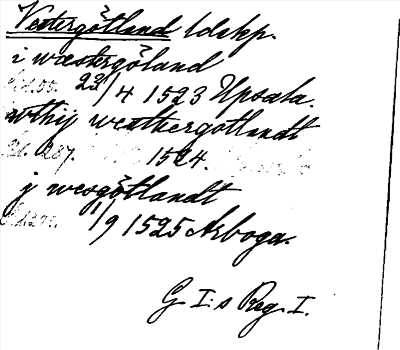 Vestergötland ldskp.
i wæstergöland
s. 55. 23/4 1523 Upsala.
wthij westhergotlandt
s. 287. 1524.
j wesgötlandt
s. 127. 1/9 1525 Arboga.
G. I:s Reg. I.